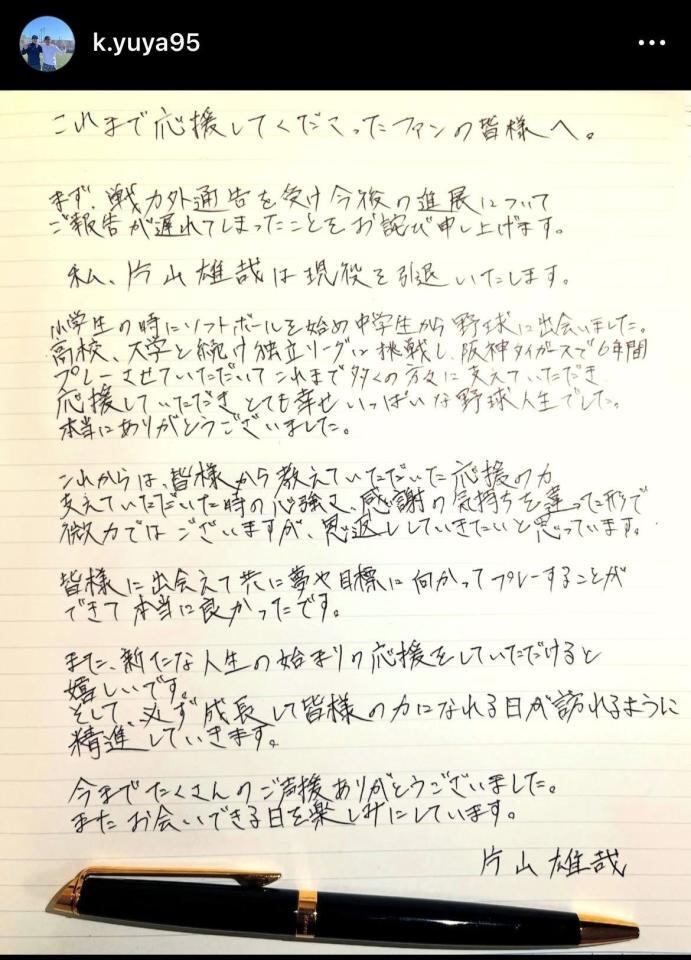 k.yuya95
これまで応援してくださったファンの皆様へ。
まず、戦力外通告を受け今後の進展について
ご報告が遅れてしまったことをお詫び申し上げます。
私、片山雄哉は現役を引退いたします。
小学生の時にソフトボールを始め中学生から野球に出会いました。
高校、大学と続け独立リーグに挑戦し、阪神タイガースで6年間
プレーさせていただいてこれまで多くの方々に支えていただき
応援していただきとても幸せいっぱいな野球人生でした。
本当にありがとうございました。
これからは、皆様から教えていただいた応援の力
支えていただいた時の心強さ、感謝の気持ちを違った形で
微力ではございますが、恩返ししていきたいと思っています。
皆様に出会えて共に夢や目標に向かってプレーすることが
できて本当に良かったです。
また、新たな人生の始まりの応援をしていただけると
嬉しいです。
そして、必ず成長して皆様の力になれる日が訪れるように
精進していきます。
今までたくさんのご声援ありがとうございました。
またお会いできる日を楽しみにしています。
片山雄哉